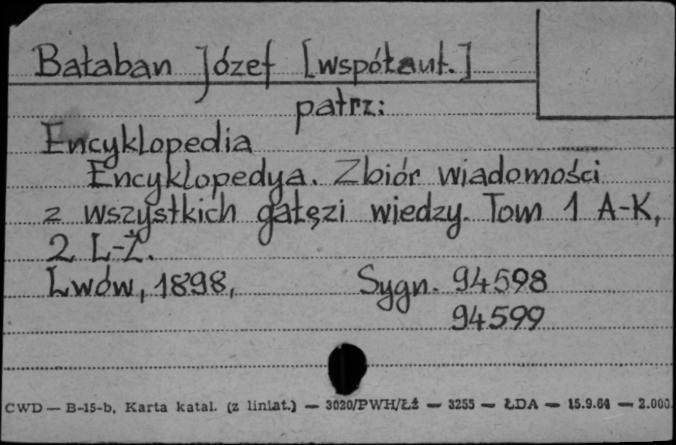 Bałaban Józef [współaut.]
patrz:
Encyklopedia
Encyklopedya. Zbiór wiadomości
z wszystkich gałęzi wiedzy. Tom 1 A-K,
2 L-Ż.
Lwów, 1898, Sygn. 94598
94599
CWD — B-15-b, Karta katal. (z liniat.) — 3020/PWH/ŁŻ — 3255 — ŁDA — 15.9.64 — 2.000.